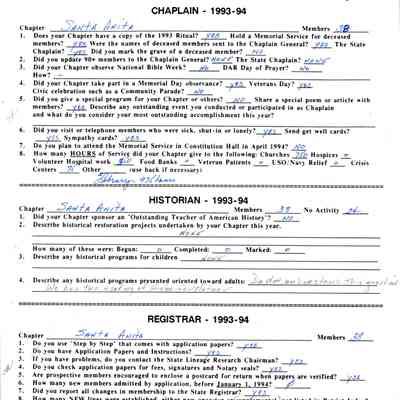 CHAPLAIN - 1993-94
Chapter Santa Anita Members 38
1. Does your Chapter have a copy of the 1993 Ritual? yes Hold a Memorial Service for deceased
members? yes Were the names of deceased members sent to the Chaplain General? yes The State
Chaplain? yes Did you mark the grave of a deceased member? No
2. Did you update 90+ members to the Chaplain General? NONE The State Chaplain? NONE
3. Did your Chapter observe National Bible Week? No DAR Day of Prayer? No
How? -
4. Did your Chapter take part in a Memorial Day observance? yes Veterans Day? yes
Civic celebration such as a Community Parade? NO
5. Did you give a special program for your Chapter or others? NO Share a special poem or article with
members? yes Describe any outstanding event you conducted or participated in as Chaplain
and what do you consider your most outstanding accomplishment this year?
6. Did you visit or telephone members who were sick, shut-in or lonely? yes Send get well cards?
yes Sympathy cards? yes
7. Do you plan to attend the Memorial Service in Constitution Hall in April 1994? NO
8. How many HOURS of service did your Chapter give to the following: Churches 350 Hospices 0
Volunteer Hospital work Food Banks 0 Veteran Patients 0 USO/Navy Relief 0 Crisis
Centers Other (use back if necessary)
HISTORIAN - 1993-94
Chapter SANTA ANITA Members 38 No Activity
1. Did your Chapter sponsor an "Outstanding Teacher of American History"? NO
2. Describe historical restoration projects undertaken by your Chapter this year.
NONE
How many of these were: Begun: 0 Completed: 0 Marked: 0
3. Describe any historical programs for children NONE
4. Describe any historical programs presented oriented toward adults:
REGISTRAR - 1993-94
Chapter Santa Anita Members 38
1. Do you use "Step by Step" that comes with application papers? yes
2. Do you have Application Papers and Instructions? yes
3. If you have problems, do you contact the State Lineage Research Chairman? yes
4. Do you check application papers for fees, signatures and Notary seals? yes
5. Are prospective members encouraged to enclose a postcard for return when papers are verified? yes
6. How many new members did you admitted by application, before January 1, 1994?
7. Did you report all changes in membership to the State Registrar? yes